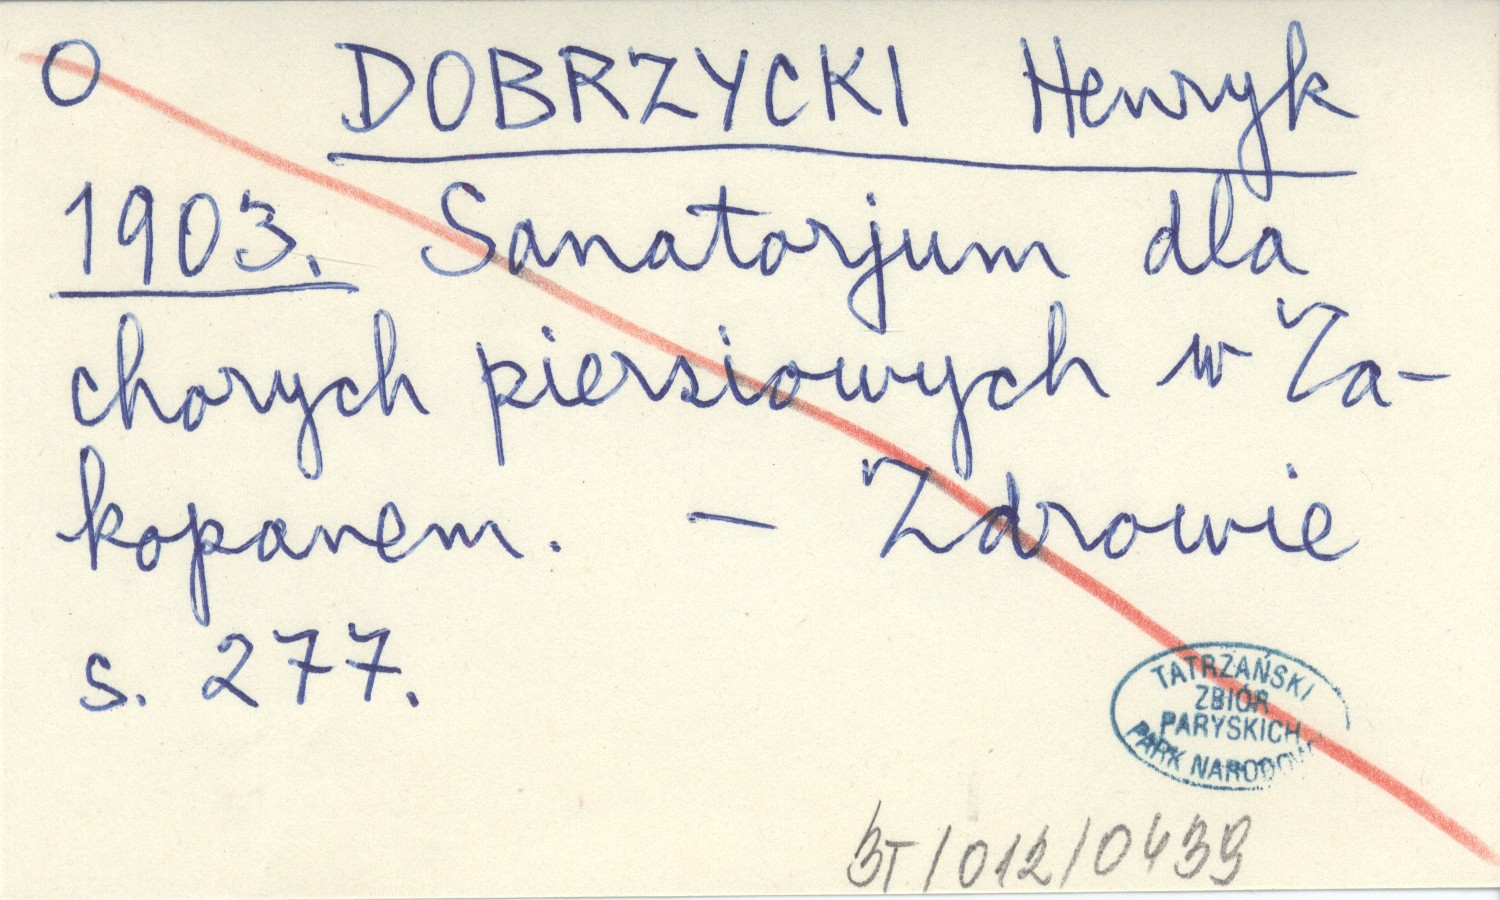 O DOBRZYCKI Henryk
1903. Sanatorjum dla
chorych piersiowych w Za-
kopanem. — Zdrowie
s. 277.
TATRZAŃSKI
ZBIÓR
PARYSKICH
PARK NARODOWY
BT/012/0439